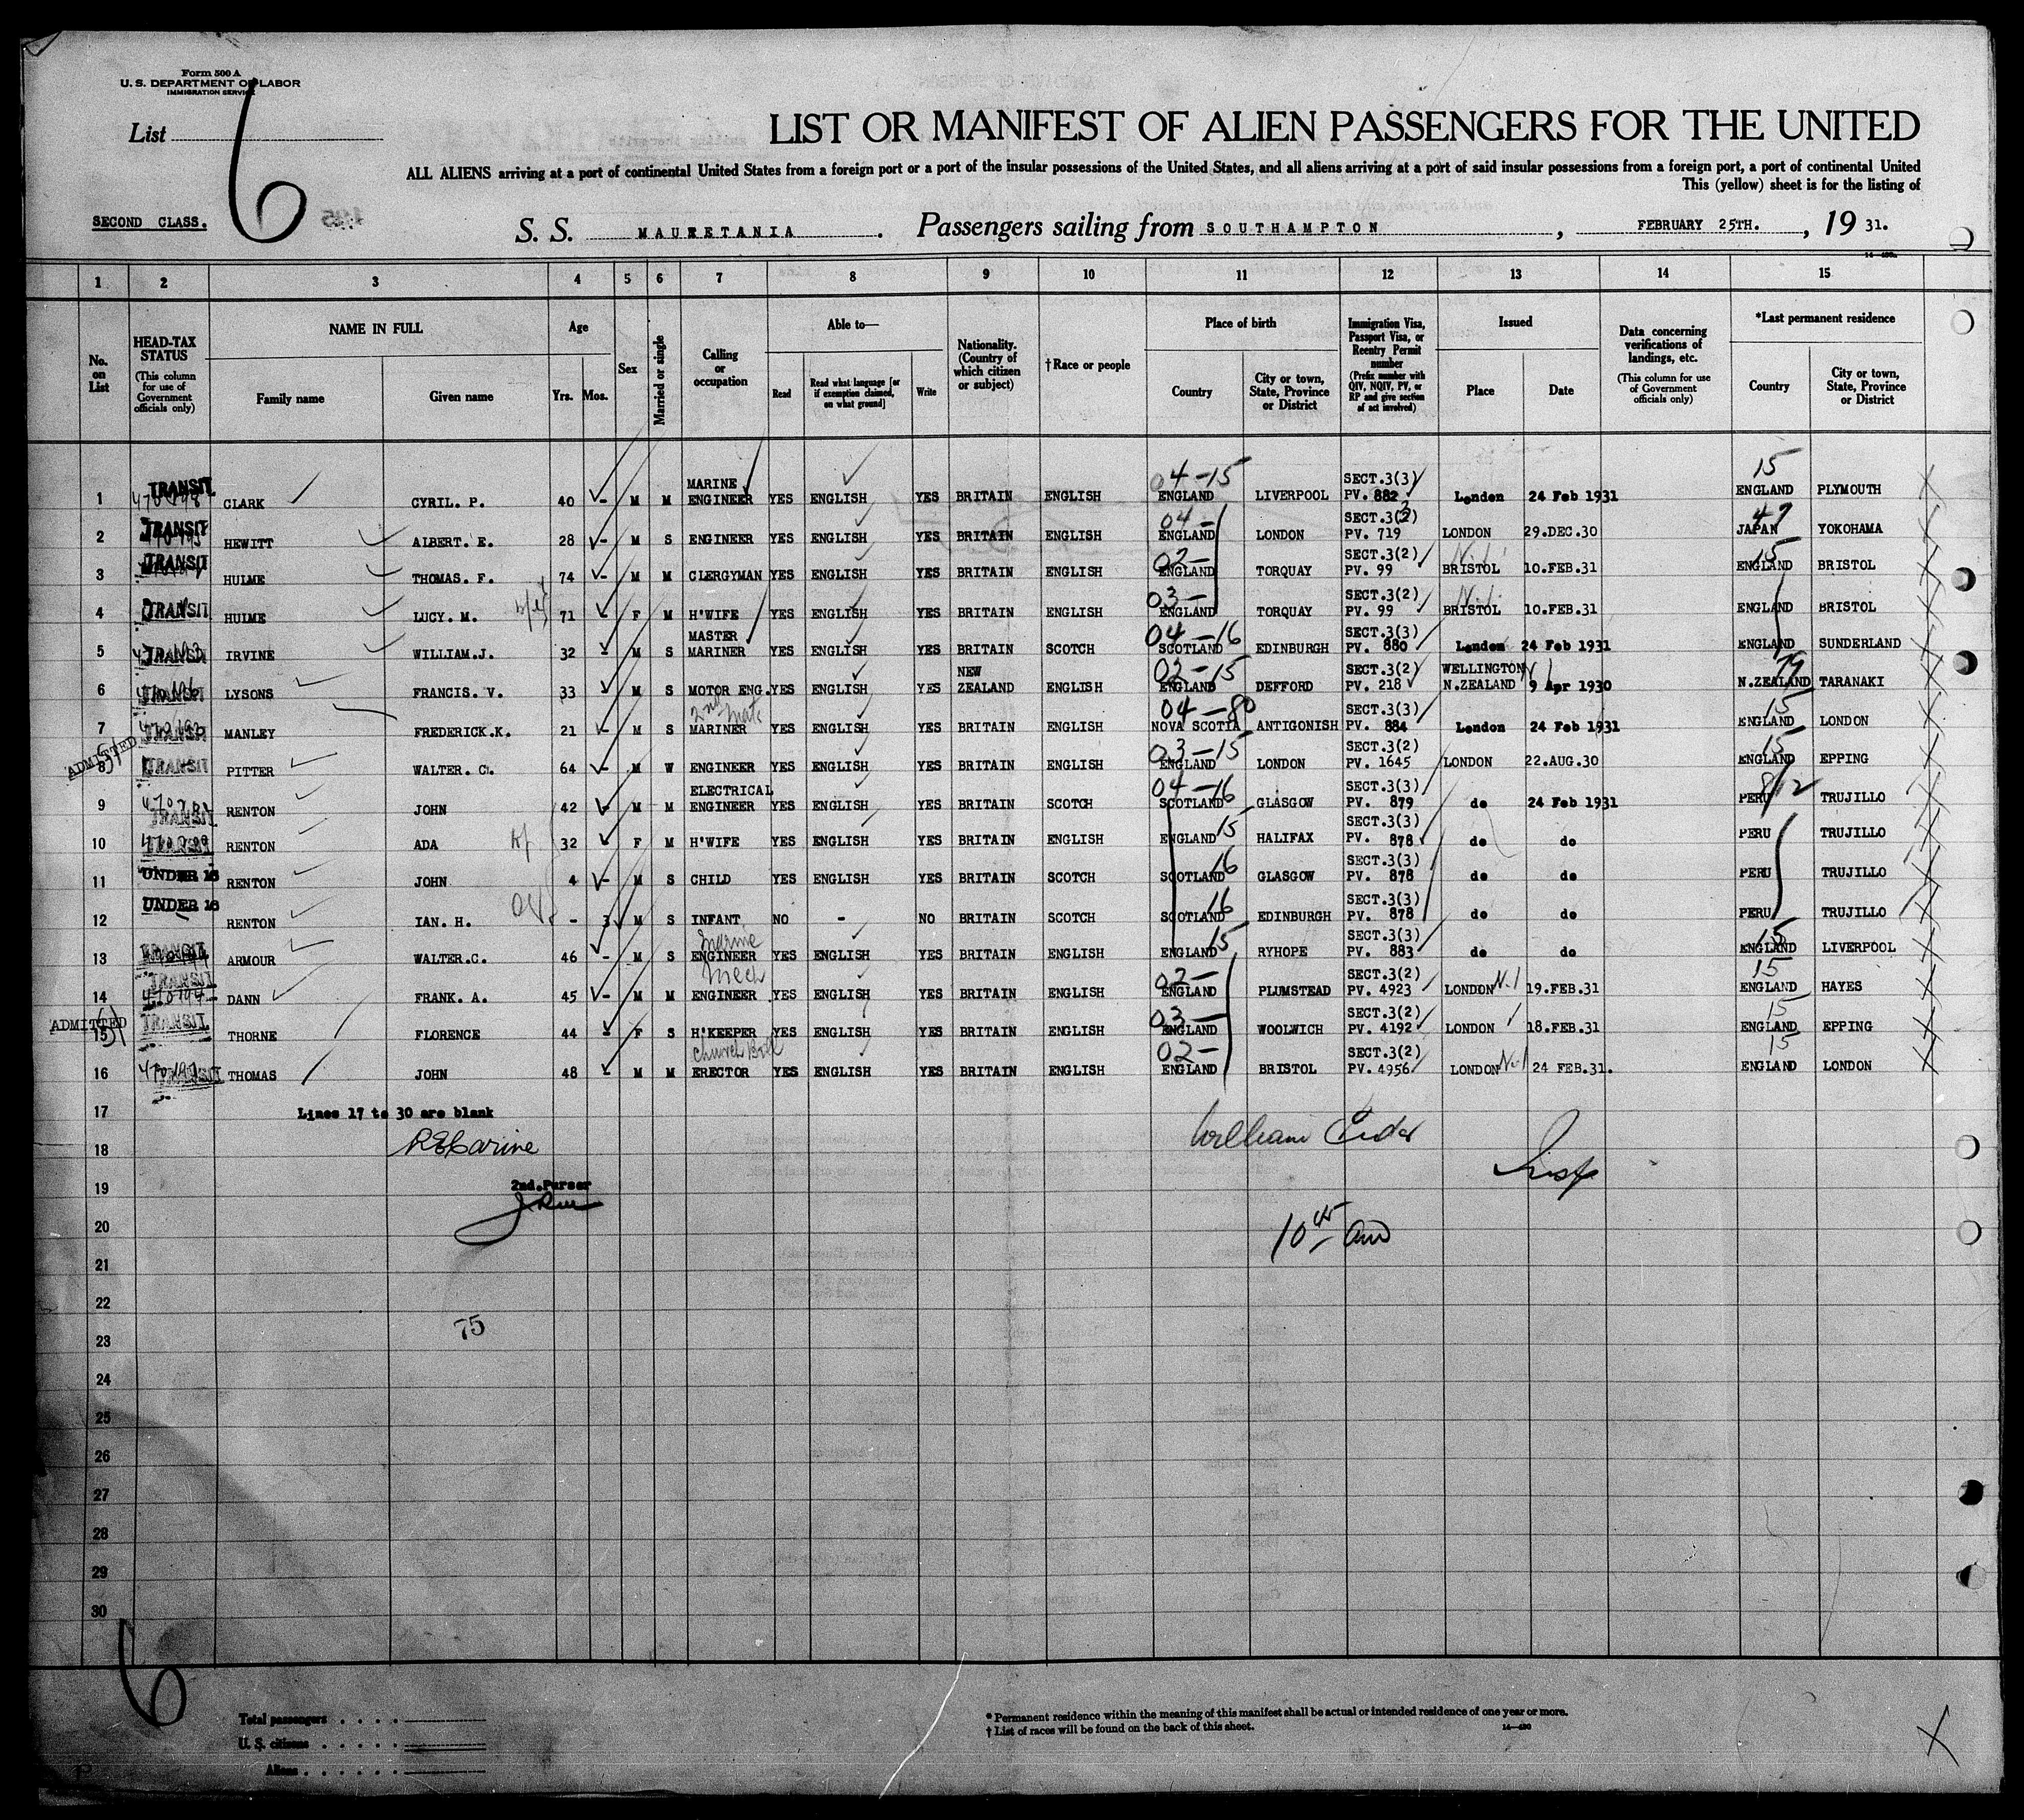 Form 500 A
U. S. DEPARTMENT OF LABOR
IMMIGRATION SERVICE
List 6
LIST OR MANIFEST OF ALIEN PASSENGERS FOR THE UNITED
ALL ALIENS arriving at a port of continental United States from a foreign port or a port of the insular possessions of the United States, and all aliens arriving at a port of said insular possessions from a foreign port, a port of continental United
This (yellow) sheet is for the listing of
SECOND CLASS.
S. S. MAURETANIA. Passengers sailing from SOUTHAMPTON, FEBRUARY 25TH., 19 31.
1 2 3 4 5 6 7 8 9 10 11 12 13 14 15
No. on List
HEAD-TAX STATUS (This column for use of Government officials only)
NAME IN FULL
Family name Given name
Age
Yrs. Mos.
Sex
Married or single
Calling or occupation
Able to—
Read Read what language [or if exemption claimed, on what ground] Write
Nationality. (Country of which citizen or subject)
†Race or people
Place of birth
Country City or town, State, Province or District
Immigration Visa, Passport Visa, or Reentry Permit number (Prefix number with QIV, NQIV, PV, or RP and give section of act involved)
Issued
Place Date
Data concerning verifications of landings, etc. (This column for use of Government officials only)
*Last permanent residence
Country City or town, State, Province or District
1 TRANSIT CLARK CYRIL. P. 40 - M M MARINE ENGINEER YES ENGLISH YES BRITAIN ENGLISH 04-15 ENGLAND LIVERPOOL SECT.3(3) PV. 882 London 24 Feb 1931 15 ENGLAND PLYMOUTH
2 TRANSIT HEWITT ALBERT. E. 28 - M S ENGINEER YES ENGLISH YES BRITAIN ENGLISH 04- ENGLAND LONDON SECT.3(2) PV. 719 LONDON 29.DEC.30 47 JAPAN YOKOHAMA
3 TRANSIT HULME THOMAS. F. 74 - M M CLERGYMAN YES ENGLISH YES BRITAIN ENGLISH 02- ENGLAND TORQUAY SECT.3(2) PV. 99 BRISTOL 10.FEB.31 15 ENGLAND BRISTOL
4 TRANSIT HULME LUCY. M. 71 - F M H'WIFE YES ENGLISH YES BRITAIN ENGLISH 03- ENGLAND TORQUAY SECT.3(2) PV. 99 BRISTOL 10.FEB.31 ENGLAND BRISTOL
5 TRANSIT IRVINE WILLIAM.J. 32 - M S MASTER MARINER YES ENGLISH YES BRITAIN SCOTCH 04-16 SCOTLAND EDINBURGH SECT.3(3) PV. 880 London 24 Feb 1931 ENGLAND SUNDERLAND
6 TRANSIT LYSONS FRANCIS. V. 33 - M S MOTOR ENG. YES ENGLISH YES NEW ZEALAND ENGLISH 02-15 ENGLAND DEFFORD SECT.3(2) PV. 218 WELLINGTON N.ZEALAND 9 Apr 1930 N.ZEALAND TARANAKI
7 TRANSIT MANLEY FREDERICK.K. 21 - M S 2nd Mate MARINER YES ENGLISH YES BRITAIN ENGLISH 04-80 NOVA SCOTIA ANTIGONISH SECT.3(3) PV. 884 London 24 Feb 1931 15 ENGLAND LONDON
ADMITTED 8 TRANSIT PITTER WALTER. C. 64 - M W ENGINEER YES ENGLISH YES BRITAIN ENGLISH 03-15 ENGLAND LONDON SECT.3(2) PV. 1645 LONDON 22.AUG.30 15 ENGLAND EPPING
9 TRANSIT RENTON JOHN 42 - M M ELECTRICAL ENGINEER YES ENGLISH YES BRITAIN SCOTCH 04-16 SCOTLAND GLASGOW SECT.3(3) PV. 879 do 24 Feb 1931 PERU TRUJILLO
10 TRANSIT RENTON ADA 32 F M H'WIFE YES ENGLISH YES BRITAIN ENGLISH ENGLAND 15 HALIFAX SECT.3(3) PV. 878 do do PERU TRUJILLO
11 UNDER 16 RENTON JOHN 4 - M S CHILD YES ENGLISH YES BRITAIN SCOTCH SCOTLAND 16 GLASGOW SECT.3(3) PV. 878 do do PERU TRUJILLO
12 UNDER 16 RENTON IAN. H. - 3 M S INFANT NO - NO BRITAIN SCOTCH SCOTLAND 16 EDINBURGH SECT.3(3) PV. 878 do do PERU TRUJILLO
13 TRANSIT ARMOUR WALTER.C. 46 - M S Marine ENGINEER YES ENGLISH YES BRITAIN ENGLISH ENGLAND 15 RYHOPE SECT.3(3) PV. 883 do do 15 ENGLAND LIVERPOOL
14 TRANSIT DANN FRANK. A. 45 - M M Mech ENGINEER YES ENGLISH YES BRITAIN ENGLISH 02- ENGLAND PLUMSTEAD SECT.3(2) PV. 4923 LONDON 19.FEB.31 15 ENGLAND HAYES
ADMITTED 15 TRANSIT THORNE FLORENCE 44 - F S H'KEEPER YES ENGLISH YES BRITAIN ENGLISH 03- ENGLAND WOOLWICH SECT.3(2) PV. 4192 LONDON 18.FEB.31 15 ENGLAND EPPING
16 TRANSIT THOMAS JOHN 48 - M M Church Bell ERECTOR YES ENGLISH YES BRITAIN ENGLISH 02- ENGLAND BRISTOL SECT.3(2) PV. 4956 LONDON 24 FEB.31. 15 ENGLAND LONDON
17 Lines 17 to 30 are blank
18 William
19 2nd.Purser Insp
20 10 45 am
21
22
23 75
24
25
26
27
28
29
30
6
Total passengers . . . .
U. S. citizens . . . . .
Aliens . . . . . .
* Permanent residence within the meaning of this manifest shall be actual or intended residence of one year or more.
† List of races will be found on the back of this sheet. 14—430